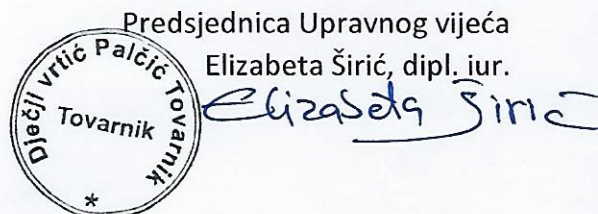 Predsjednica Upravnog vijeća
Elizabeta Širić, dipl. iur.
Elizabeta Širić
Dječji vrtić Palčić Tovarnik
Tovarnik
*